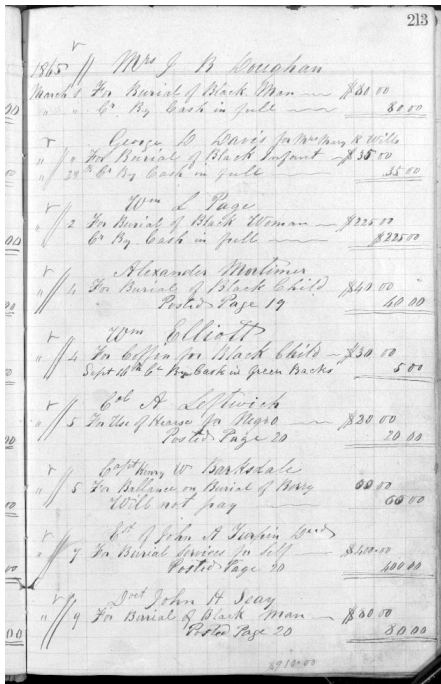 213
1865 Mrs J B Doughan
March 1 For Burial of Black Man — $80 00
" " Cr By Cash in full — 80.00
George D Davis for Mrs Mary R Wills
" " For Burial of Black Infant — $35 00
" 29th Cr By Cash in full — 35 00
Wm L Page
" 2 For Burial of Black Woman — $225 00
Cr By Cash in full — $225 00
Alexander Mortimer
" 4 For Burial of Black Child $40 00
Posted Page 19 40.00
Wm Elliott
" 4 For Coffin for Black Child — $30 00
Sept 16th Cr By Cash in Green Backs 5 00
Col A Leftwich
" 5 For Use of Hearse for Negro — $20 00
Posted Page 20 20 00
Capt Henry W Barksdale
" 5 For Ballance on Burial of Berry 60 00
Will not pay — 60 00
Est of John A Turpin Decd
" 7 For Burial Services for Self — $400.00
Posted Page 20 400 00
Doct John H Seay
" 9 For Burial of Black Man — $80 00
Posted Page 20 80 00